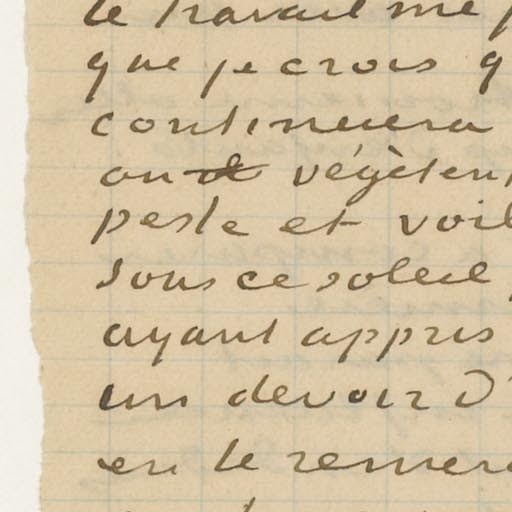 le travail me
que je crois q
continuera
on végèten
peste et voil
sous ce soleil
ayant appris
un devoir D'
en le remer